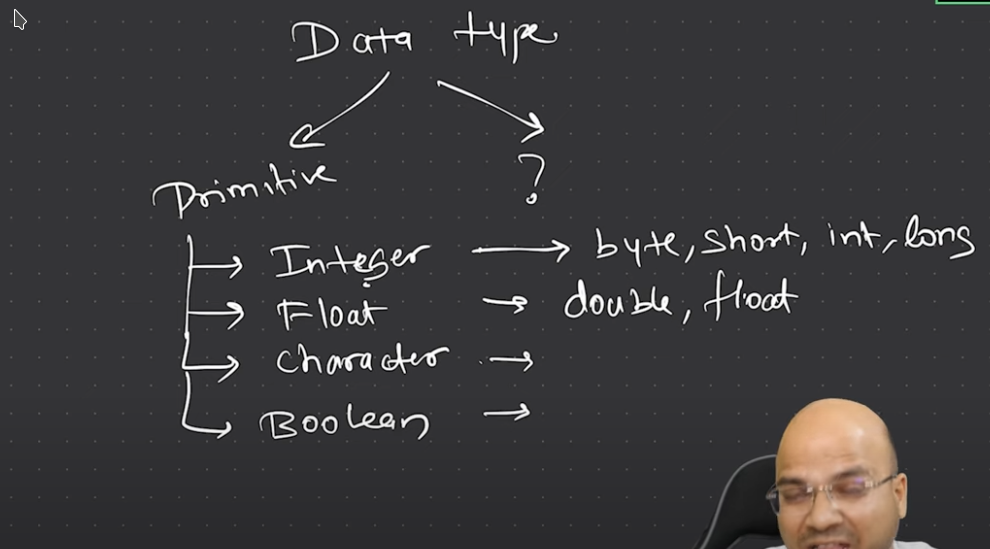 Data type
Primitive ?
Integer byte, short, int, long
Float double, float
Character
Boolean